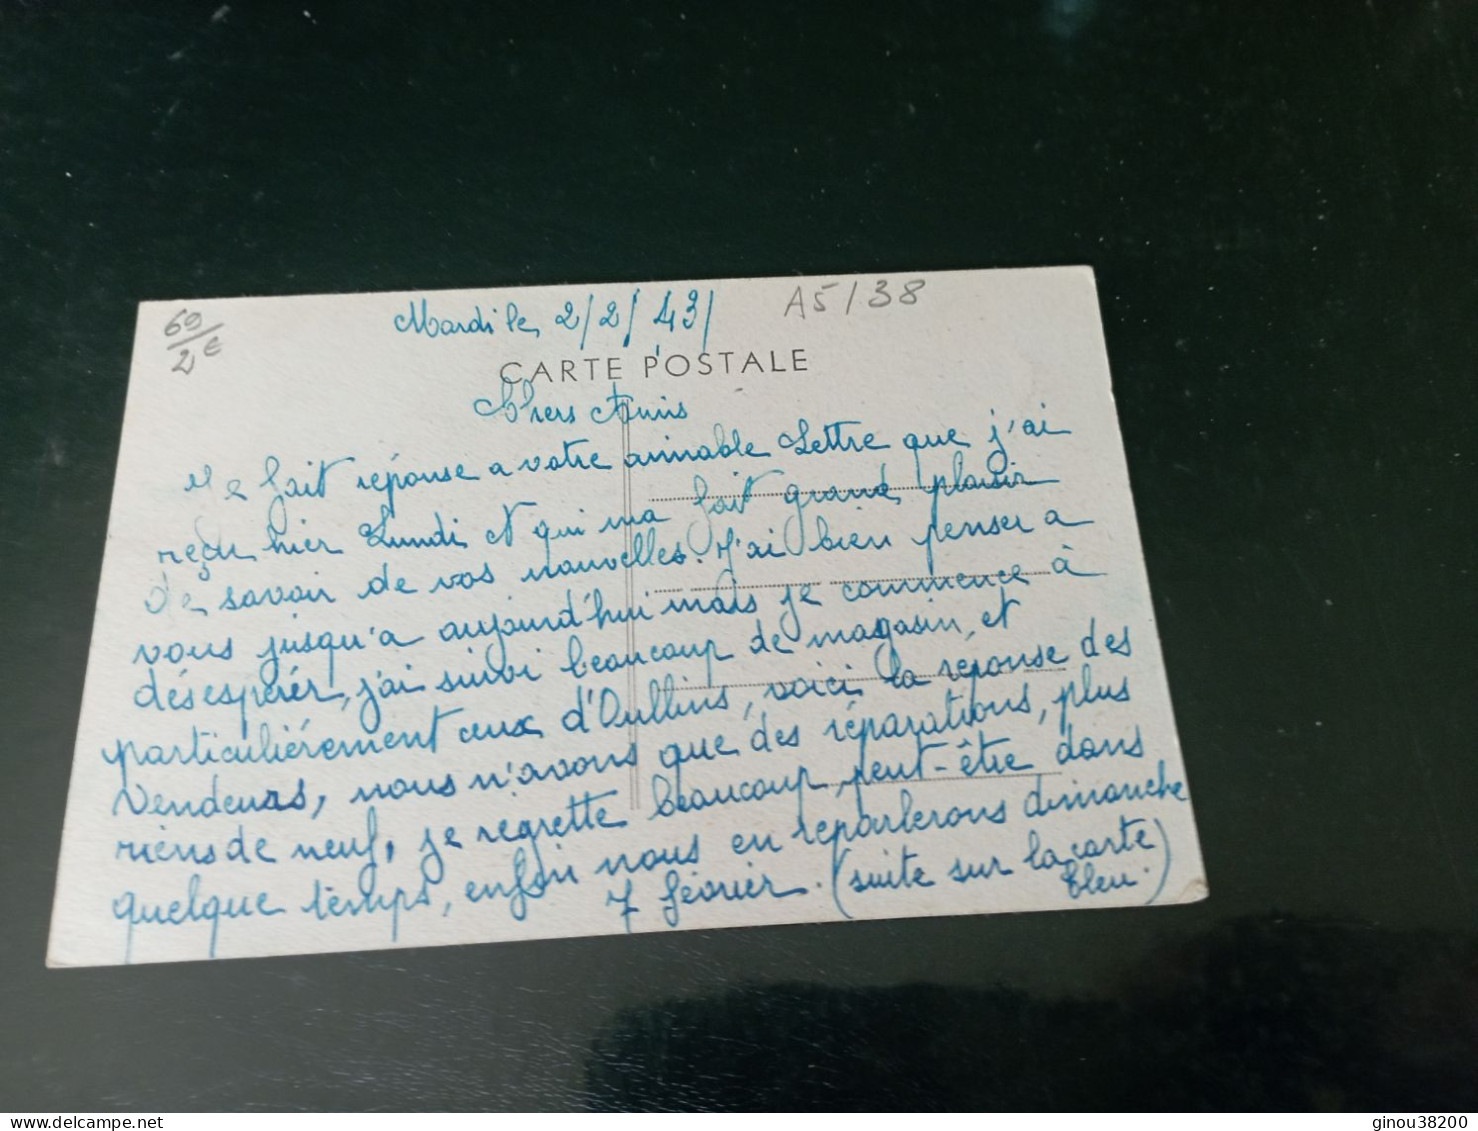 60/2€
Mardi le 2/2/43/
A5/38
CARTE POSTALE
Chers Amis
Je fait réponse a votre aimable Lettre que j'ai
reçu hier Lundi et qui ma fait grand plaisir
de savoir de vos nouvelles. J'ai bien penser a
vous jusqu'a aujourd'hui mais je commence à
désespérér, j'ai suivi beaucoup de magasin, et
particuliérement ceux d'Oullins, voici la reponse des
vendeurs, nous n'avons que des réparations, plus
riens de neuf, je regrette beaucoup, peut-être dans
quelque temps, enfin nous en reparlerons dimanche
7 février. (suite sur la carte
bleu.)
ginou38200